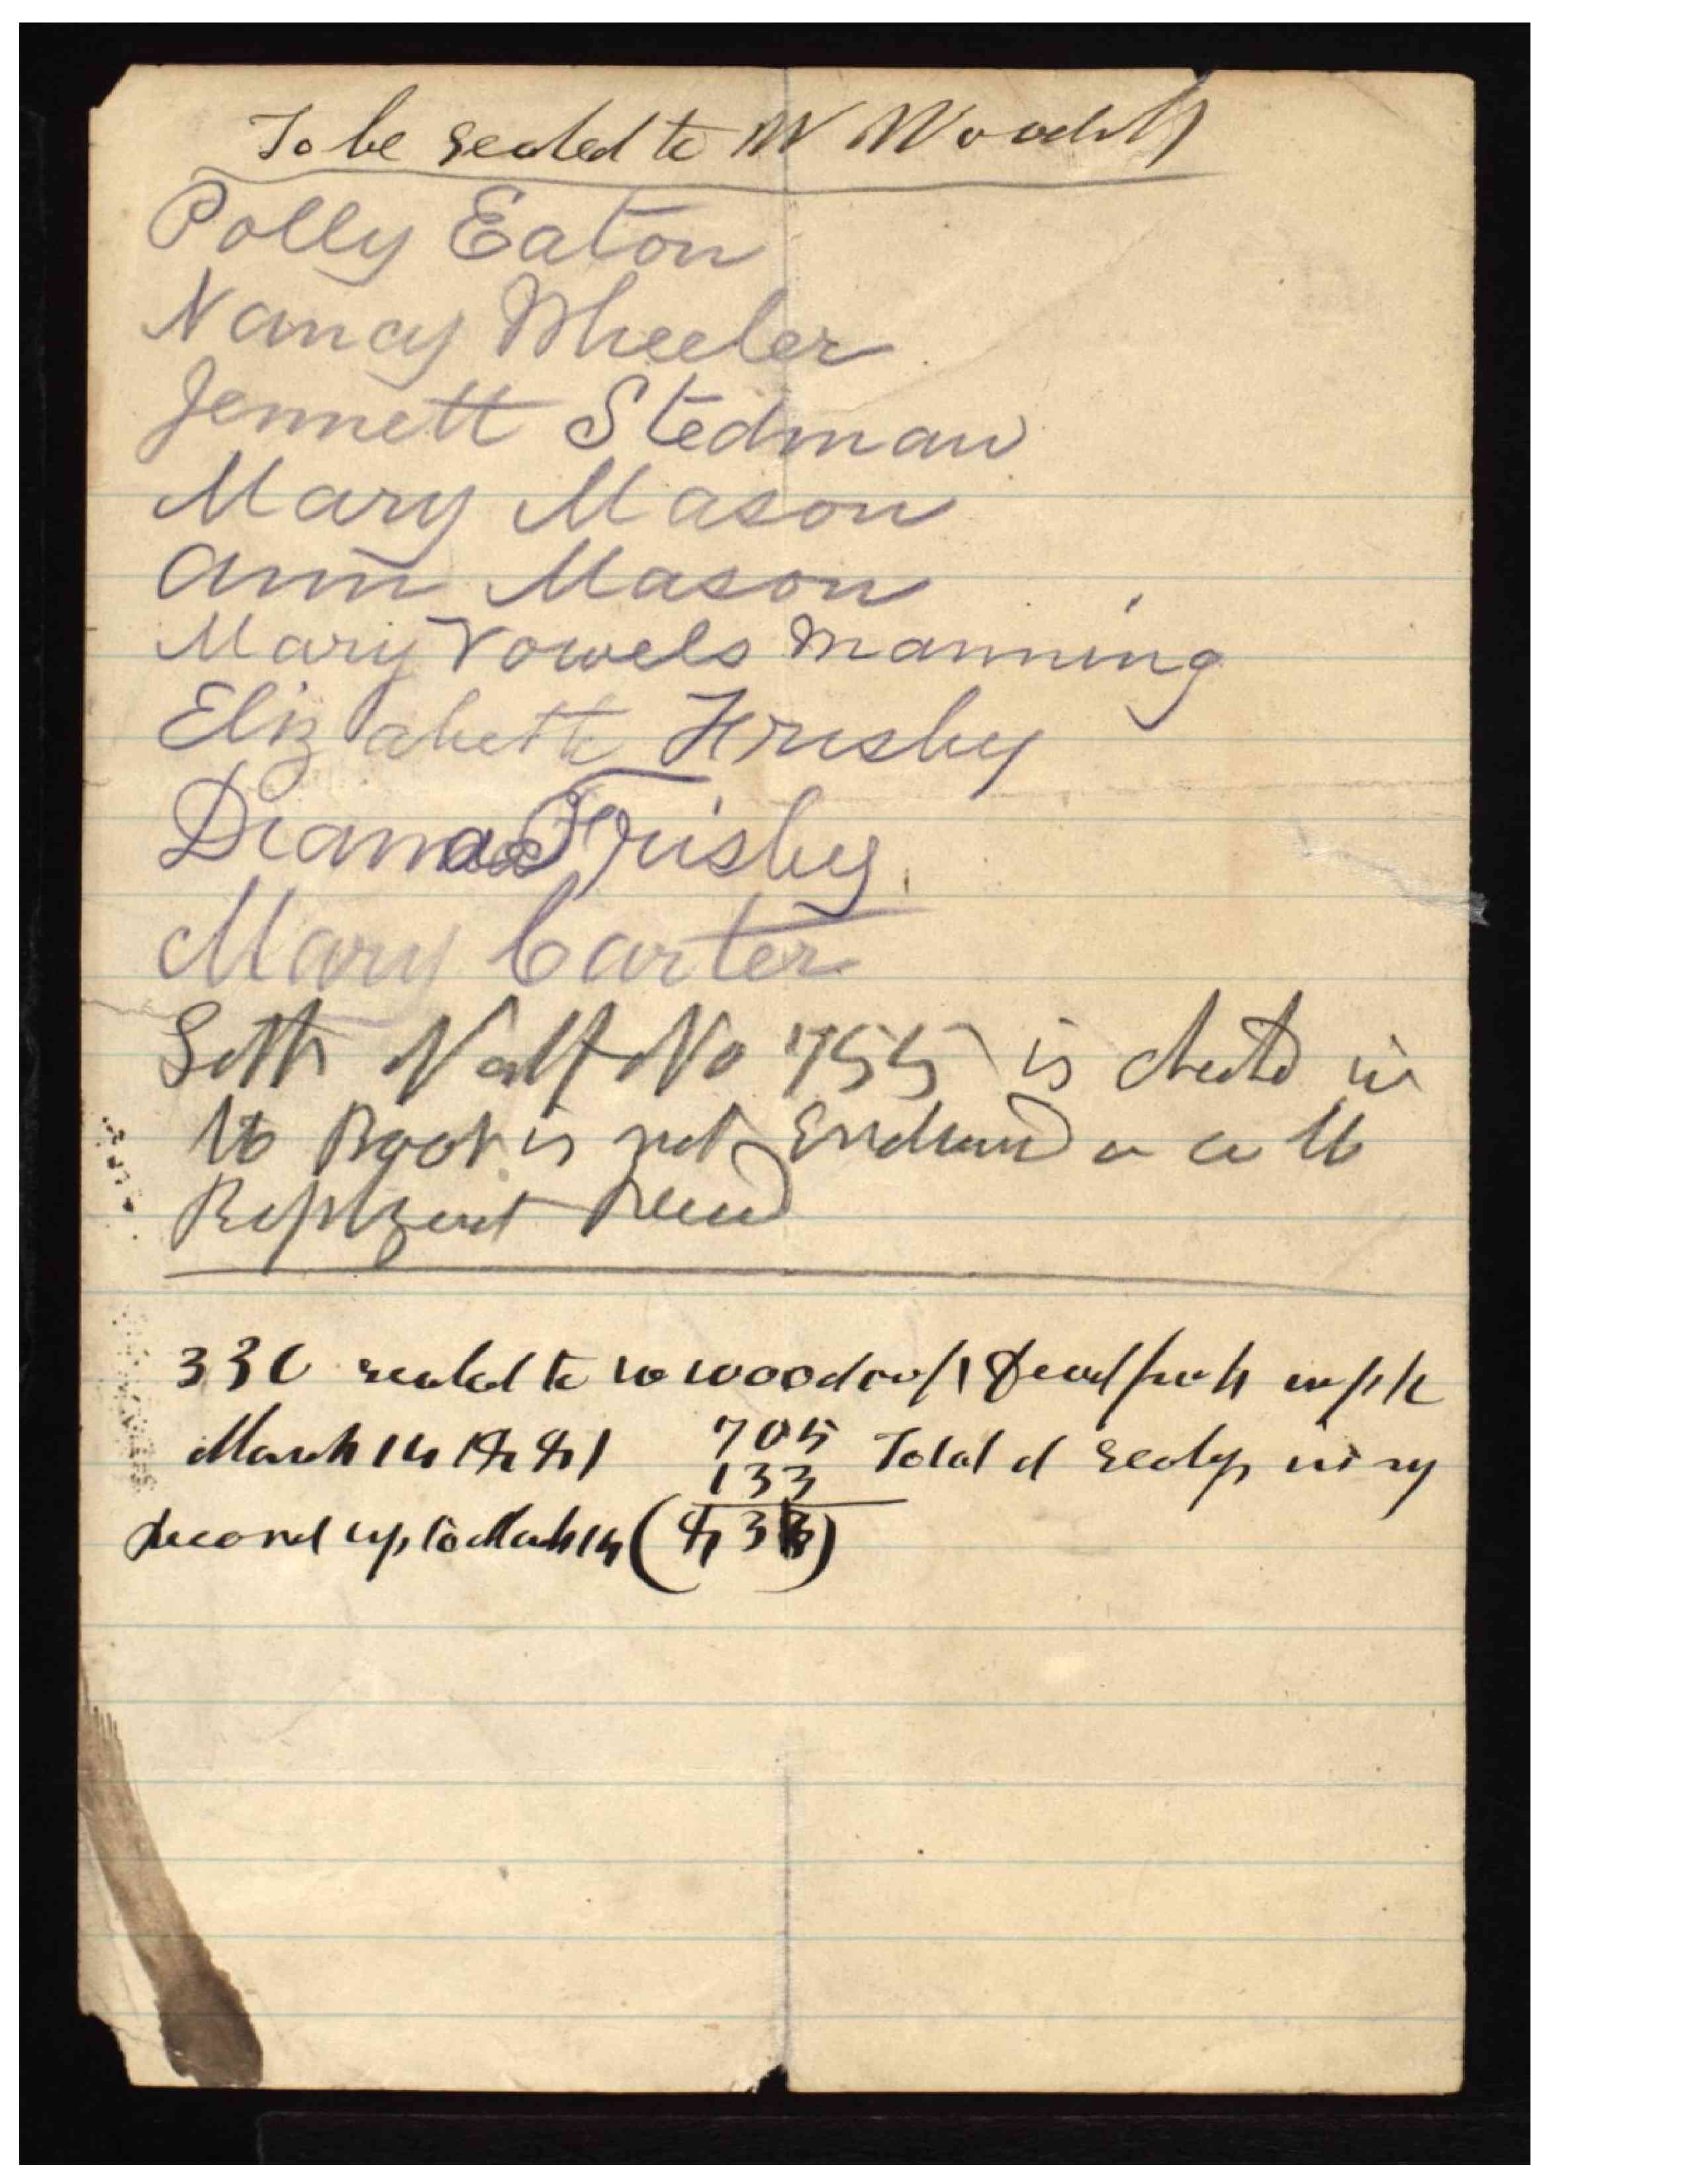 To be sealed to W Woodruff
Polly Eaton
Nancy Wheeler
Jennett Stedman
Mary Mason
Ann Mason
Mary Vowels Manning
Elizabeth Frisby
Diana Frisby
Mary Carter
No 755 is in
Book is not
330 sealed to W Woodruff
March 14 1881 705 Total of Sealings in my
133
Record up to March 14 (838)